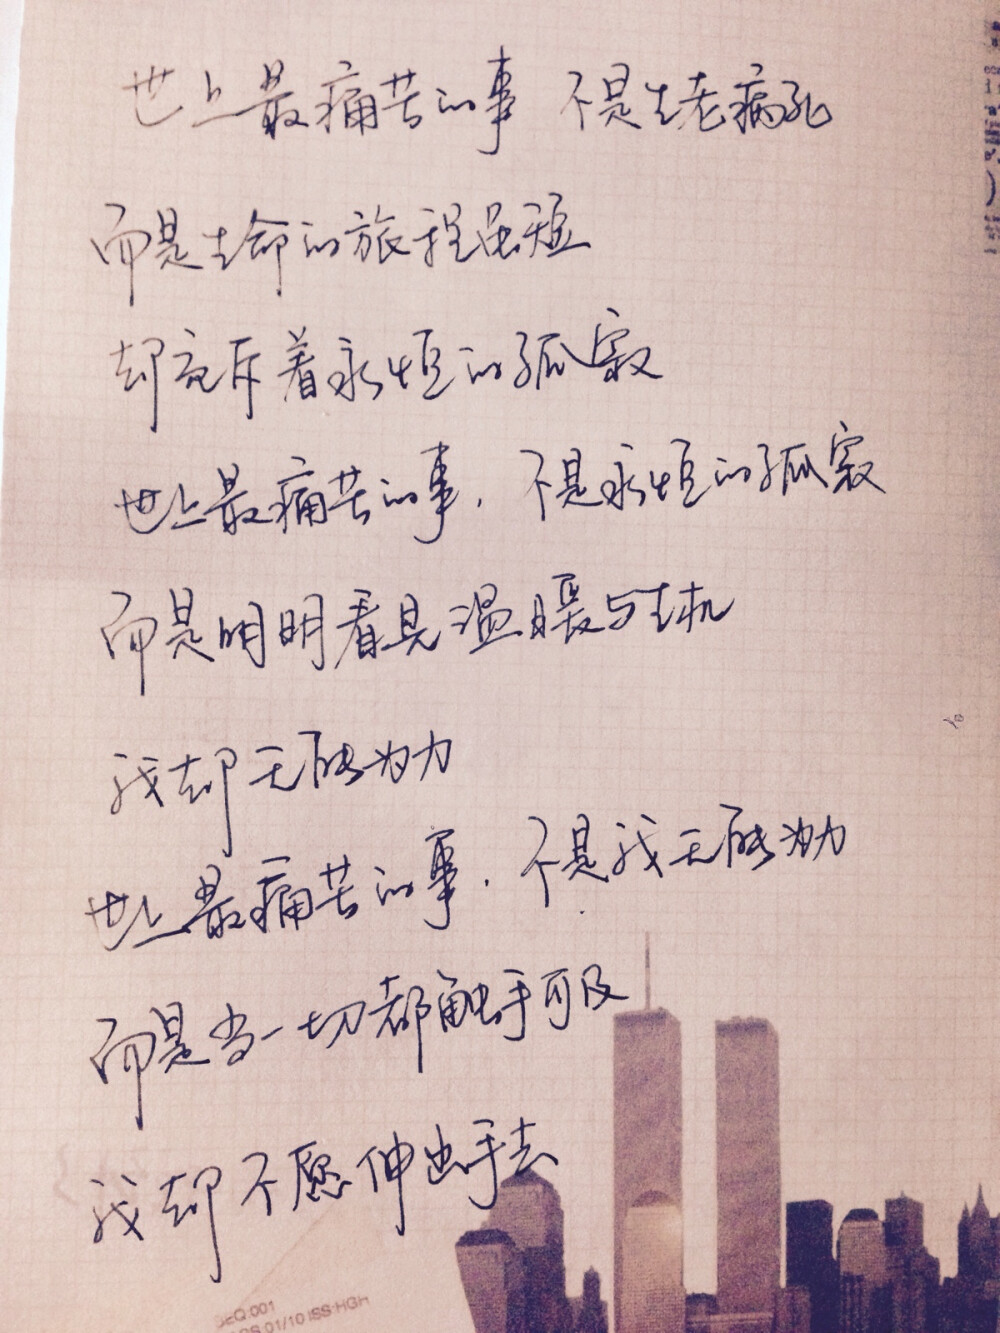 世上最痛苦的事 不是生老病死
而是生命的旅程虽短
却充斥着永恒的孤寂
世上最痛苦的事，不是永恒的孤寂
而是明明看见温暖与生机
我却无能为力
世上最痛苦的事，不是我无能为力
而是当一切都触手可及
我却不愿伸出手去
SEQ 001
01/10 ISS-HGH